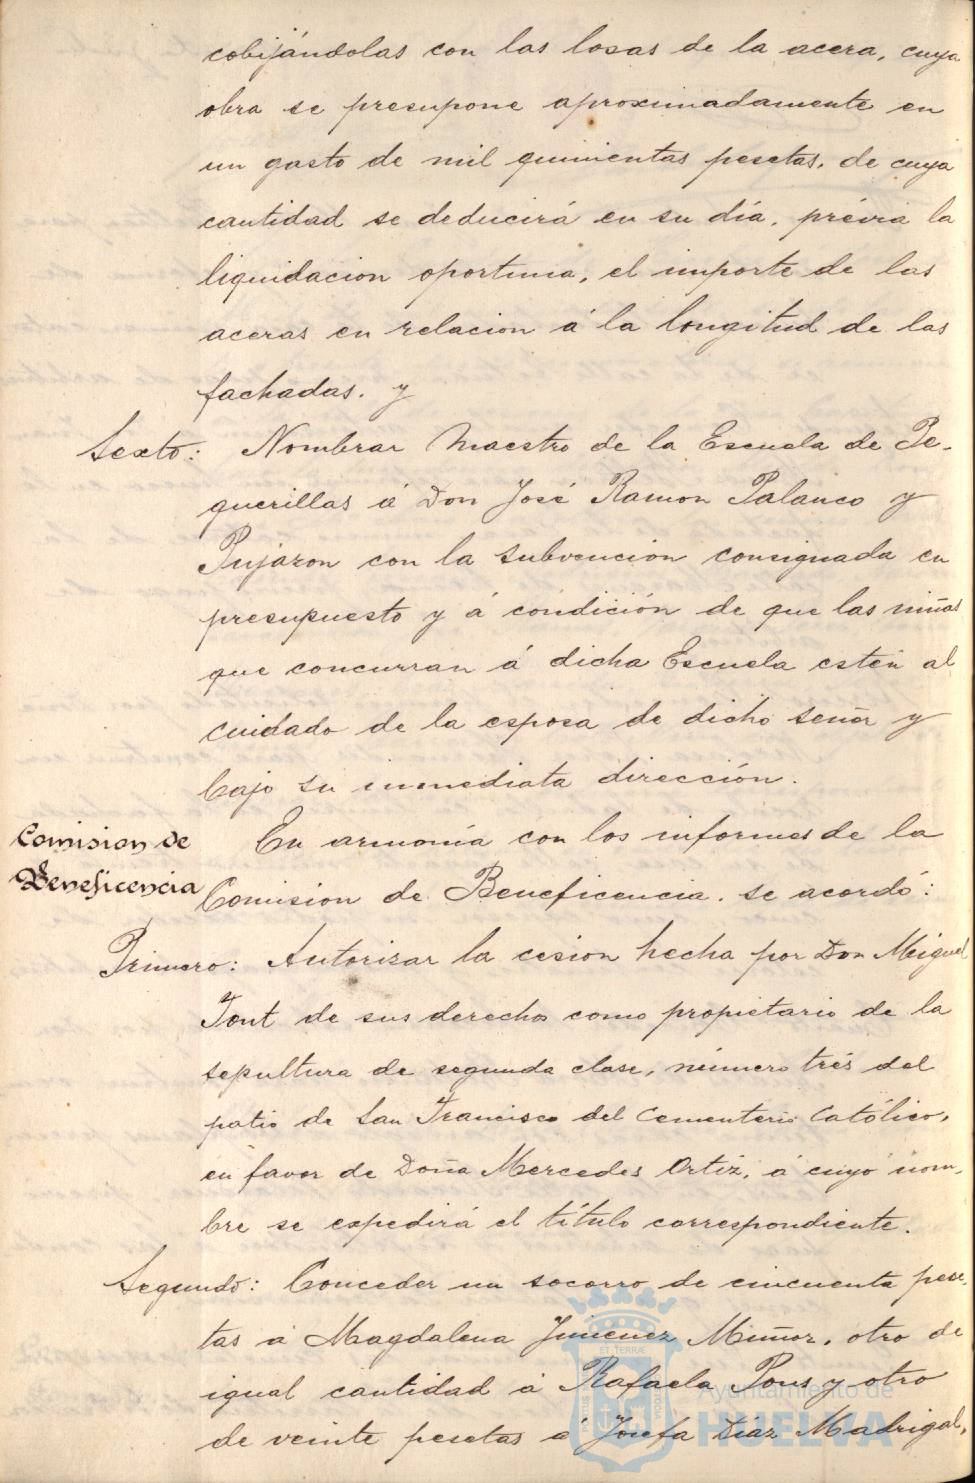 cobijándolas con las losas de la acera, cuya
obra se presupone aproximadamente en
un gasto de mil quinientas pesetas, de cuya
cantidad se deducirá en su día, prévia la
liquidacion oportuna, el importe de las
aceras en relacion á la longitud de las
fachadas. y
Sexto: Nombrar Maestro de la Escuela de Pe-
guerillas á Don José Ramon Palanco y
Pujaron con la subvencion consignada en
presupuesto y á condición de que las niñas
que concurran á dicha Escuela estén al
cuidado de la esposa de dicho señor y
bajo su inmediata dirección.
Comision de
Beneficencia
En armonía con los informes de la
Comision de Beneficencia. se acordó:
Primero: Autorizar la cesion hecha por Don Miguel
Font de sus derechos como propietario de la
sepultura de segunda clase, número trés del
patio de San Francisco del Cementerio Católico,
en favor de Doña Mercedes Ortiz, á cuyo nom-
bre se expedirá el título correspondiente.
Segundo: Conceder un socorro de cincuenta pese-
tas á Magdalena Jimenez Muñoz, otro de
igual cantidad á Rafaela Pons y otro
de veinte pesetas á Josefa Diaz Madrigal,
Ayuntamiento de
HUELVA